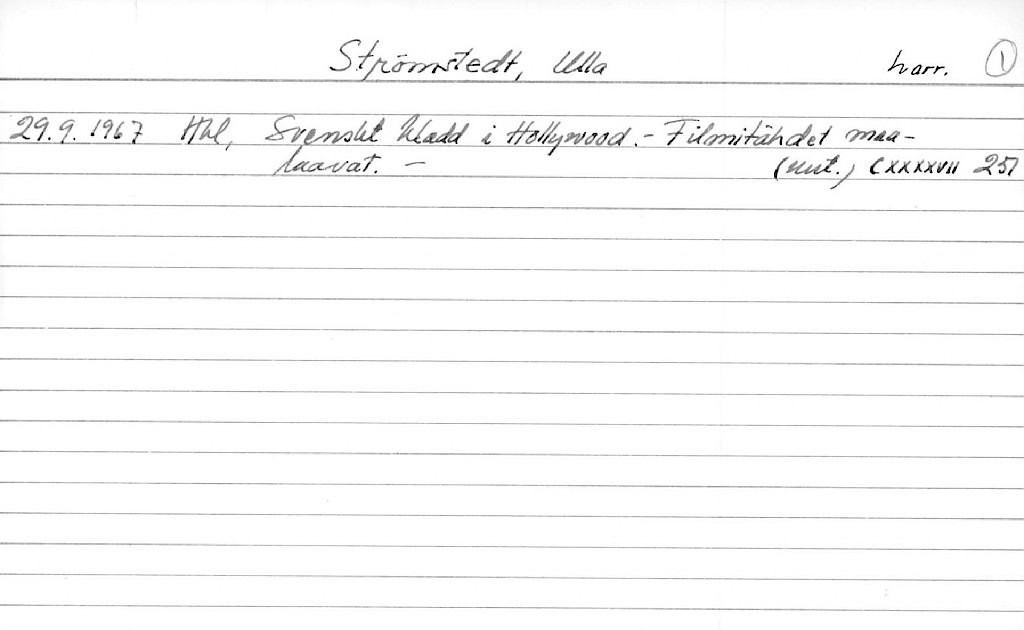 Strömstedt, Ulla harr. 1
29.9.1967 Hbl, Svenskt kladd i Hollywood. - Filmitähdet maa-
laavat. - (uut.) CXXXXVII 257